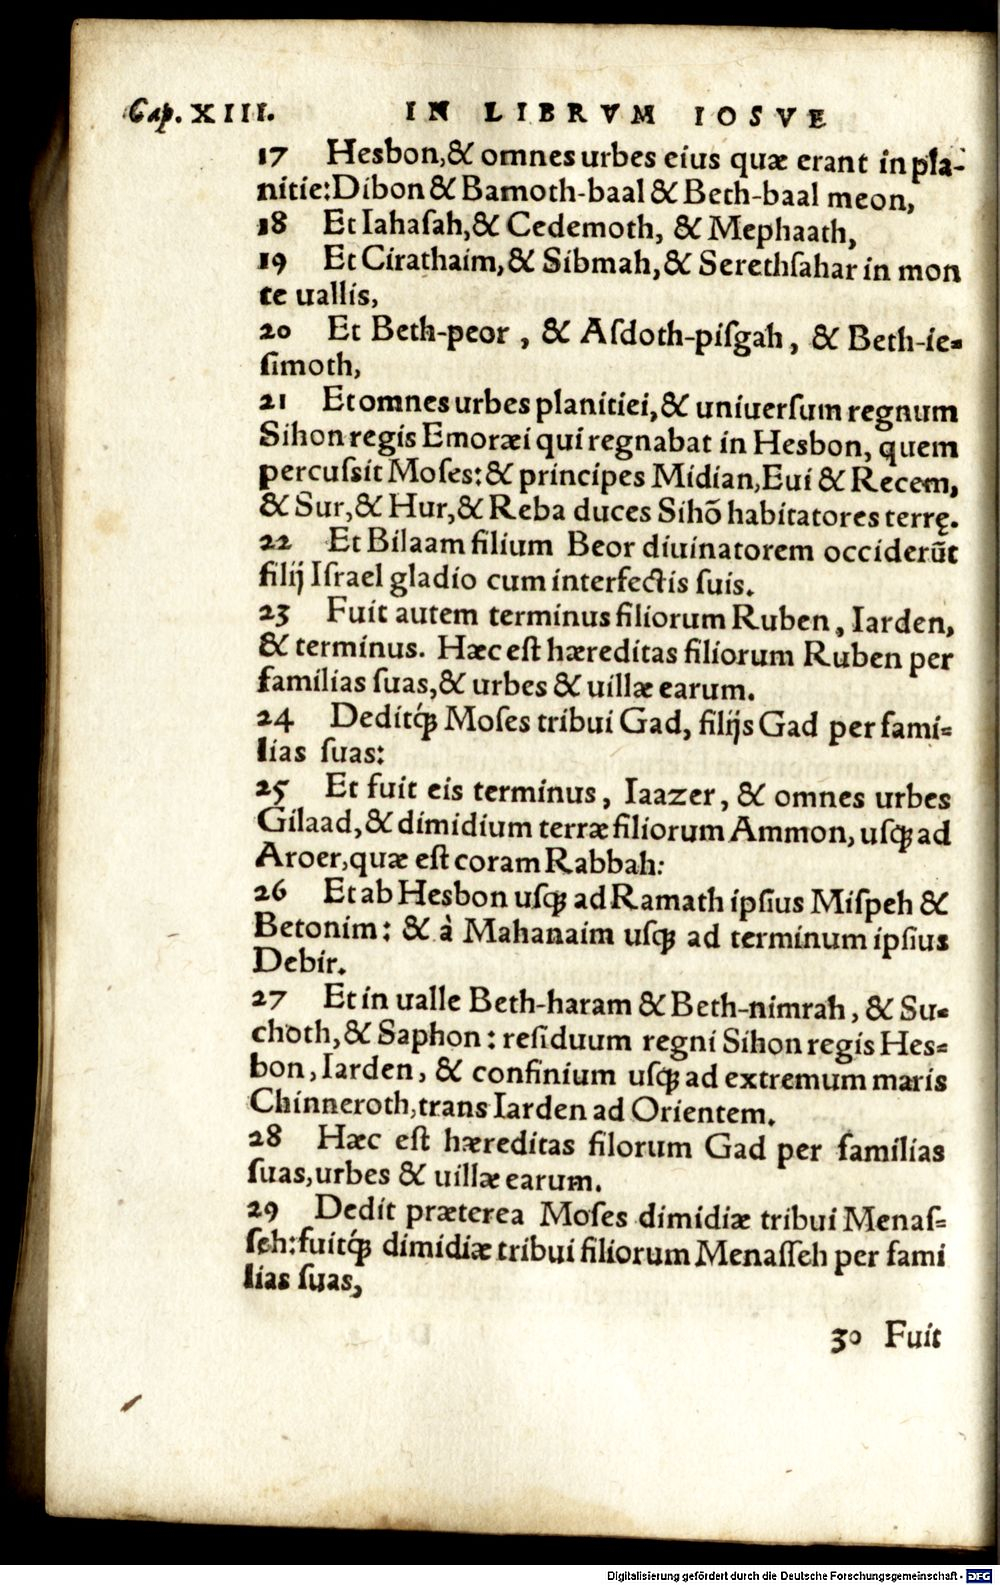 Cap. XIII. IN LIBRVM IOSVE
17 Hesbon,& omnes urbes eius quæ erant in pla-
nitie:Dibon & Bamoth-baal & Beth-baal meon,
18 Et Iahaſah,& Cedemoth, & Mephaath,
19 Et Cirathaim,& Sibmah,& Serethſahar in mon
te uallis,
20 Et Beth-peor , & Aſdoth-piſgah , & Beth-ie-
ſimoth,
21 Et omnes urbes planitiei,& uniuerſum regnum
Sihon regis Emoræi qui regnabat in Hesbon, quem
percuſsit Moſes:& principes Midian,Eui & Recem,
& Sur,& Hur,& Reba duces Sihõ habitatores terrę.
22 Et Bilaam filium Beor diuinatorem occiderũt
filij Iſrael gladio cum interfectis ſuis.
23 Fuit autem terminus filiorum Ruben, Iarden,
& terminus. Hæc eſt hæreditas filiorum Ruben per
familias ſuas,& urbes & uillæ earum.
24 Deditq́ꝫ Moſes tribui Gad, filijs Gad per fami-
lias ſuas:
25 Et fuit eis terminus, Iaazer, & omnes urbes
Gilaad,& dimidium terræ filiorum Ammon, uſqꝫ ad
Aroer,quæ eſt coram Rabbah:
26 Et ab Hesbon uſqꝫ ad Ramath ipſius Miſpeh &
Betonim: & à Mahanaim uſqꝫ ad terminum ipſius
Debir.
27 Et in ualle Beth-haram & Beth-nimrah, & Su-
choth,& Saphon: reſiduum regni Sihon regis Hes-
bon, Iarden, & confinium uſqꝫ ad extremum maris
Chinneroth,trans Iarden ad Orientem.
28 Hæc eſt hæreditas filorum Gad per familias
ſuas,urbes & uillæ earum.
29 Dedit præterea Moſes dimidiæ tribui Menaſ-
ſeh:fuitq́ꝫ dimidiæ tribui filiorum Menaſſeh per fami
lias ſuas,
30 Fuit
Digitalisierung gefördert durch die Deutsche Forschungsgemeinschaft - DFG